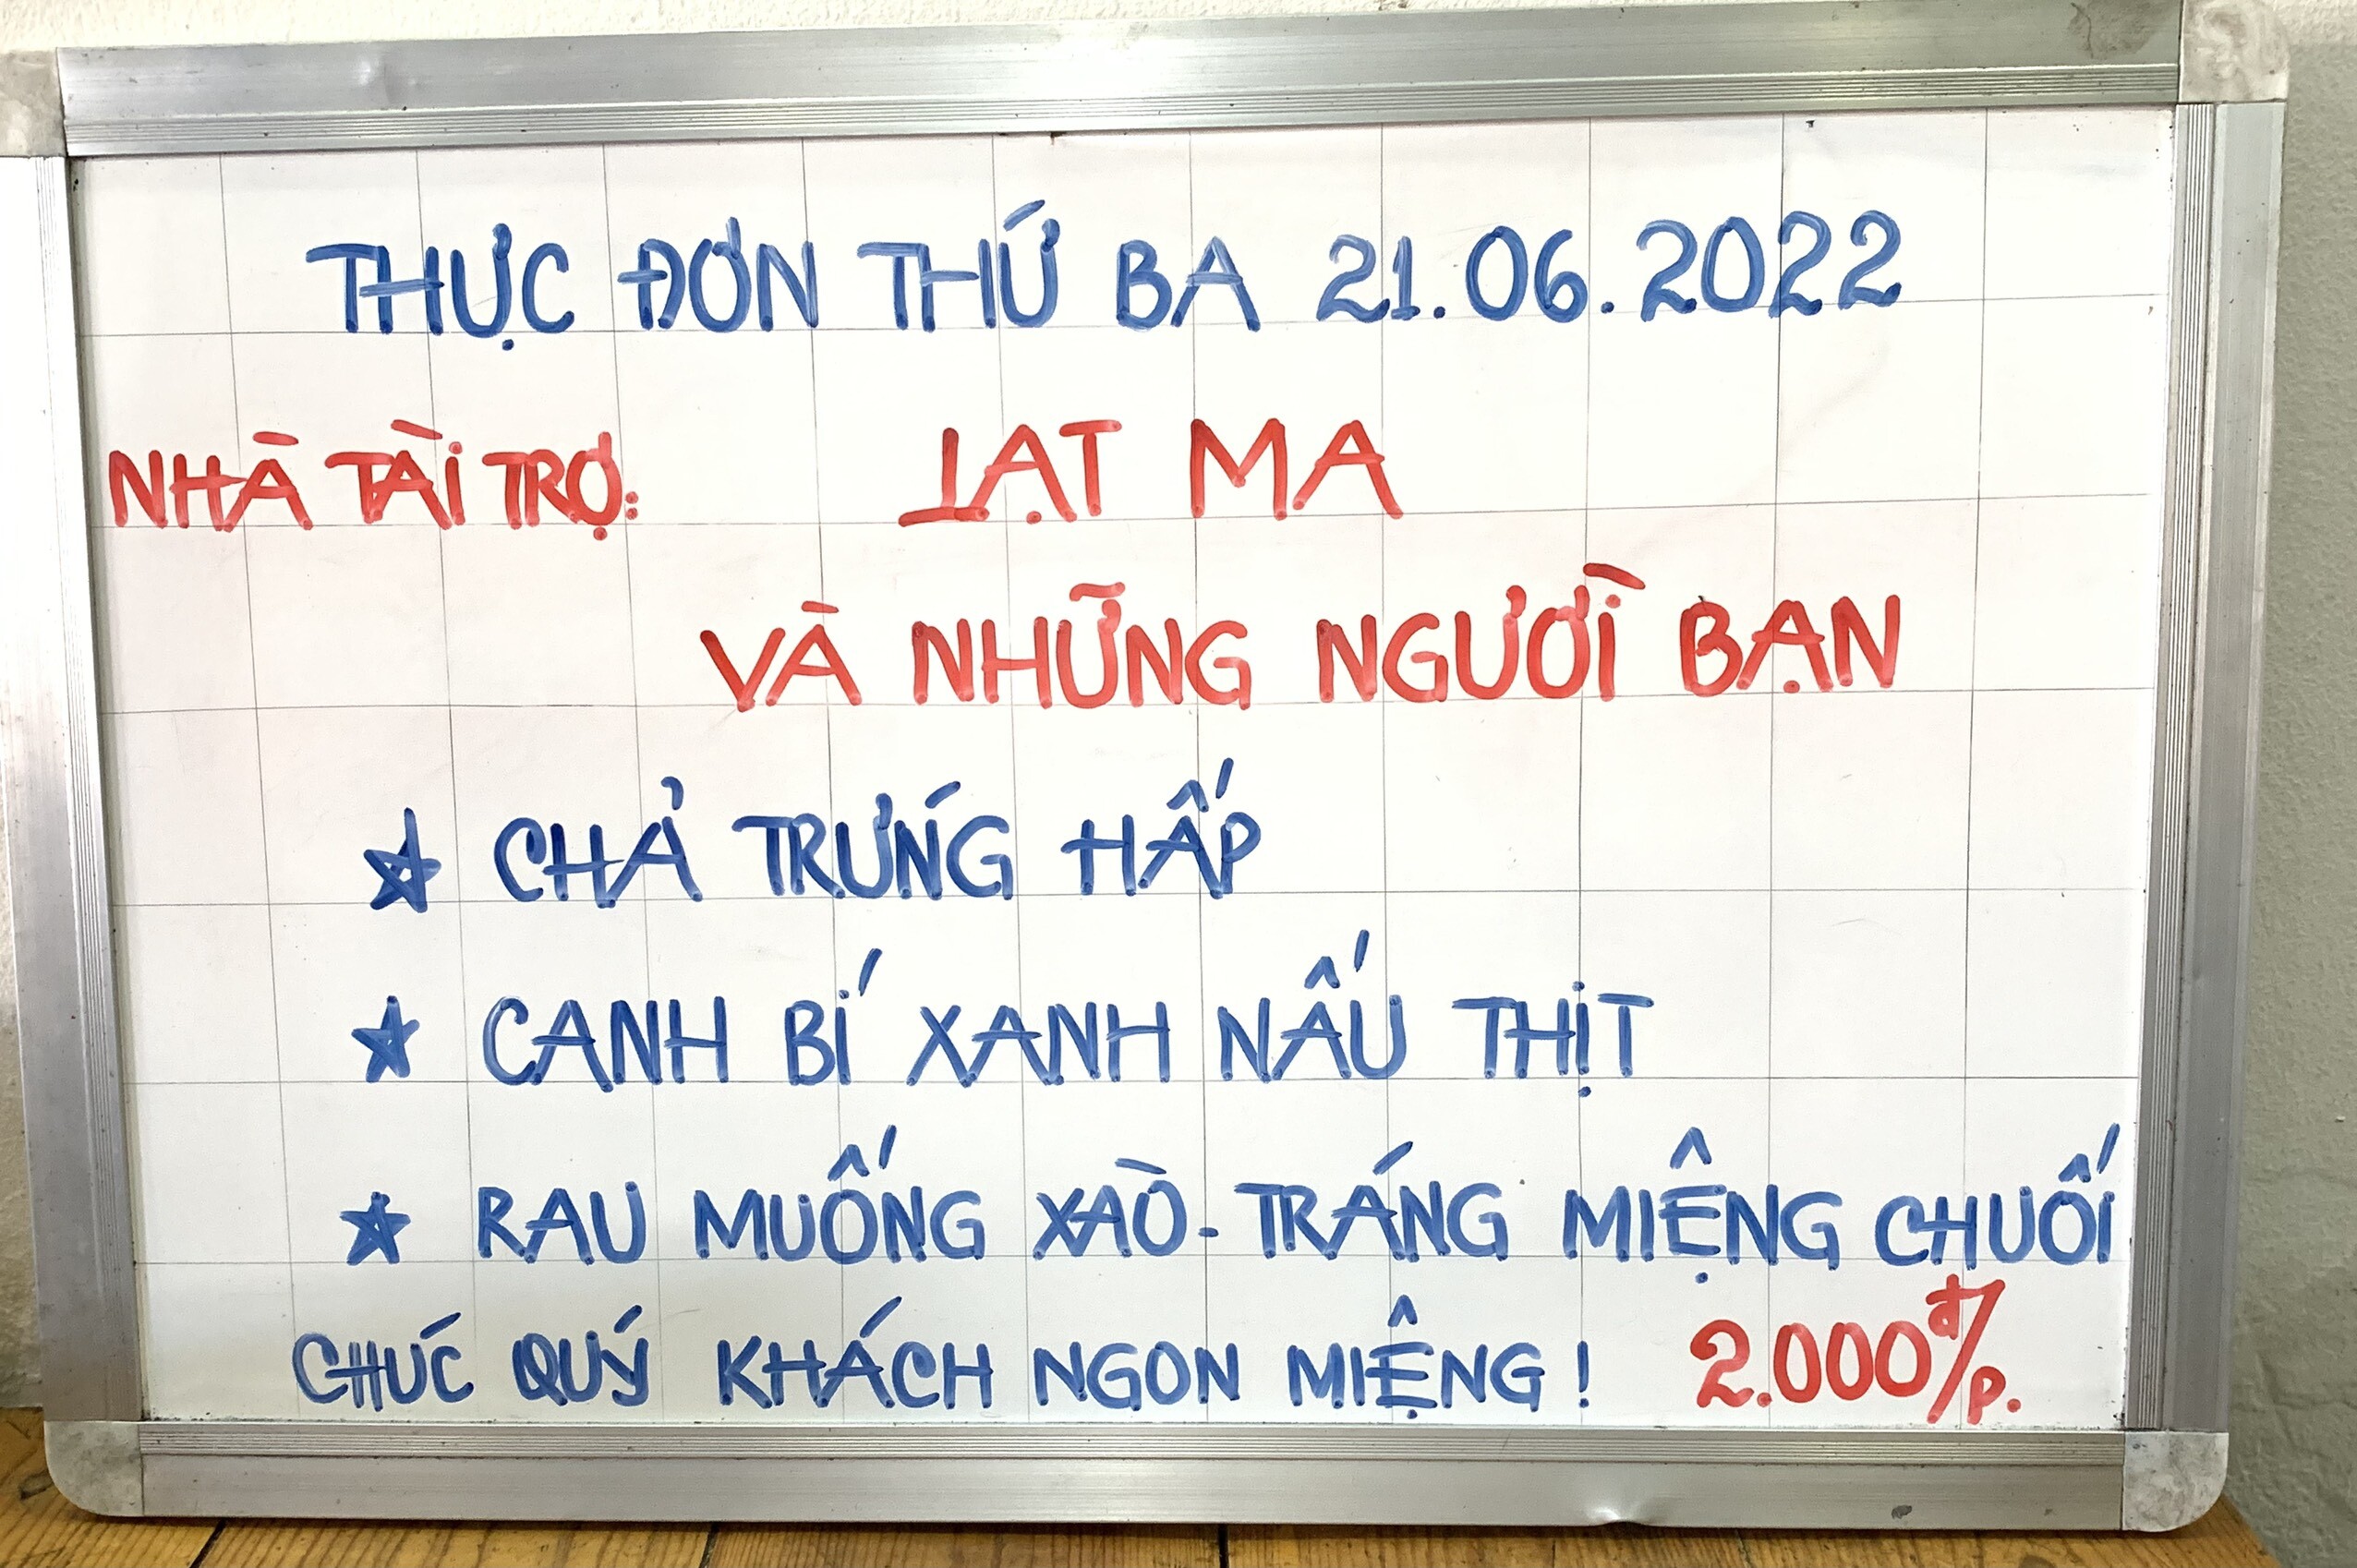 THỰC ĐƠN THỨ BA 21.06.2022
NHÀ TÀI TRỢ: LẠT MA
VÀ NHỮNG NGƯỜI BẠN
★ CHẢ TRỨNG HẤP
★ CANH BÍ XANH NẤU THỊT
★ RAU MUỐNG XÀO - TRÁNG MIỆNG CHUỐI
CHÚC QUÝ KHÁCH NGON MIỆNG! 2.000đ/p.